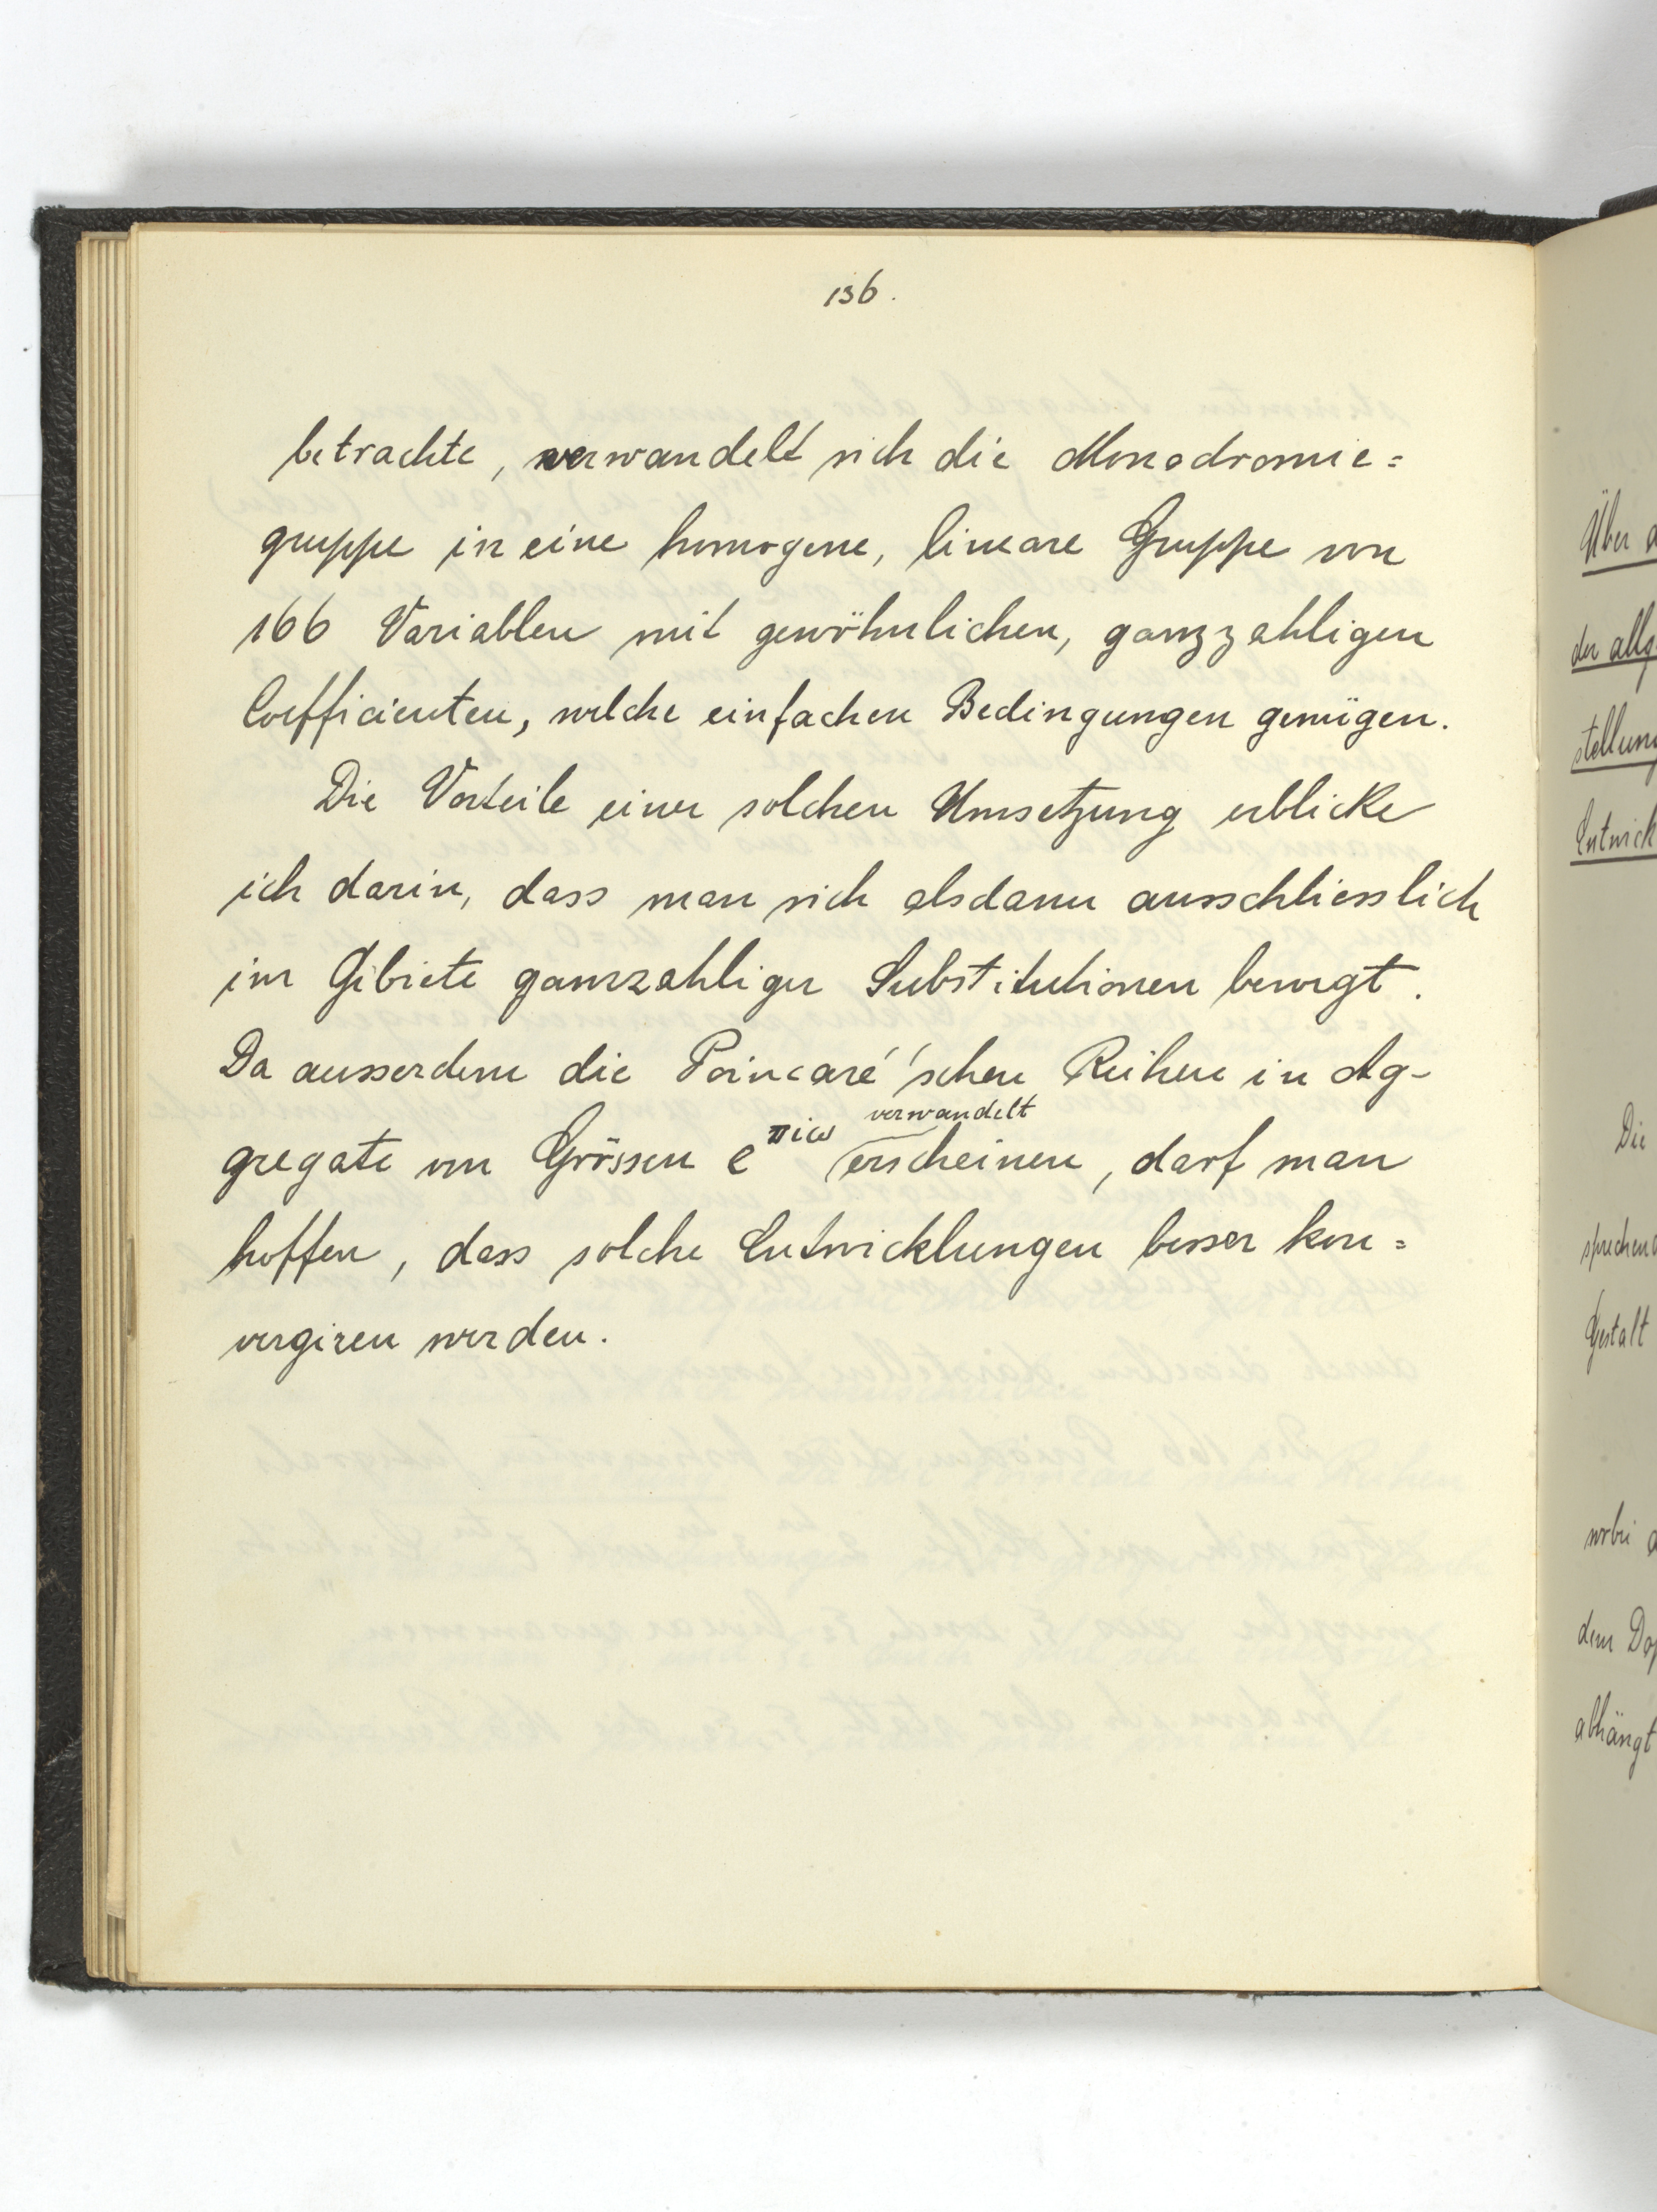 136.
betrachte, verwandelt sich die Monodromie=
gruppe in eine homogene, lineare Gruppe von
166 Variablen mit gewöhnlichen, ganzzahligen
Coefficienten, welche einfachen Bedingungen genügen.
Die Vorteile einer solchen Umsetzung erblicke
ich darin, dass man sich alsdann ausschliesslich
im Gebiete ganzzahliger Substitutionen bewegt.
Da ausserdem die Poincaré'schen Reihen in Ag-
gregate von Grössen e^πiω verwandelt erscheinen, darf man
hoffen, dass solche Entwicklungen besser kon=
vergiren werden.
Über
der allg
stellung
Entwick
Die
sprechend
Gestalt
wobei
dem Dop
abhängt